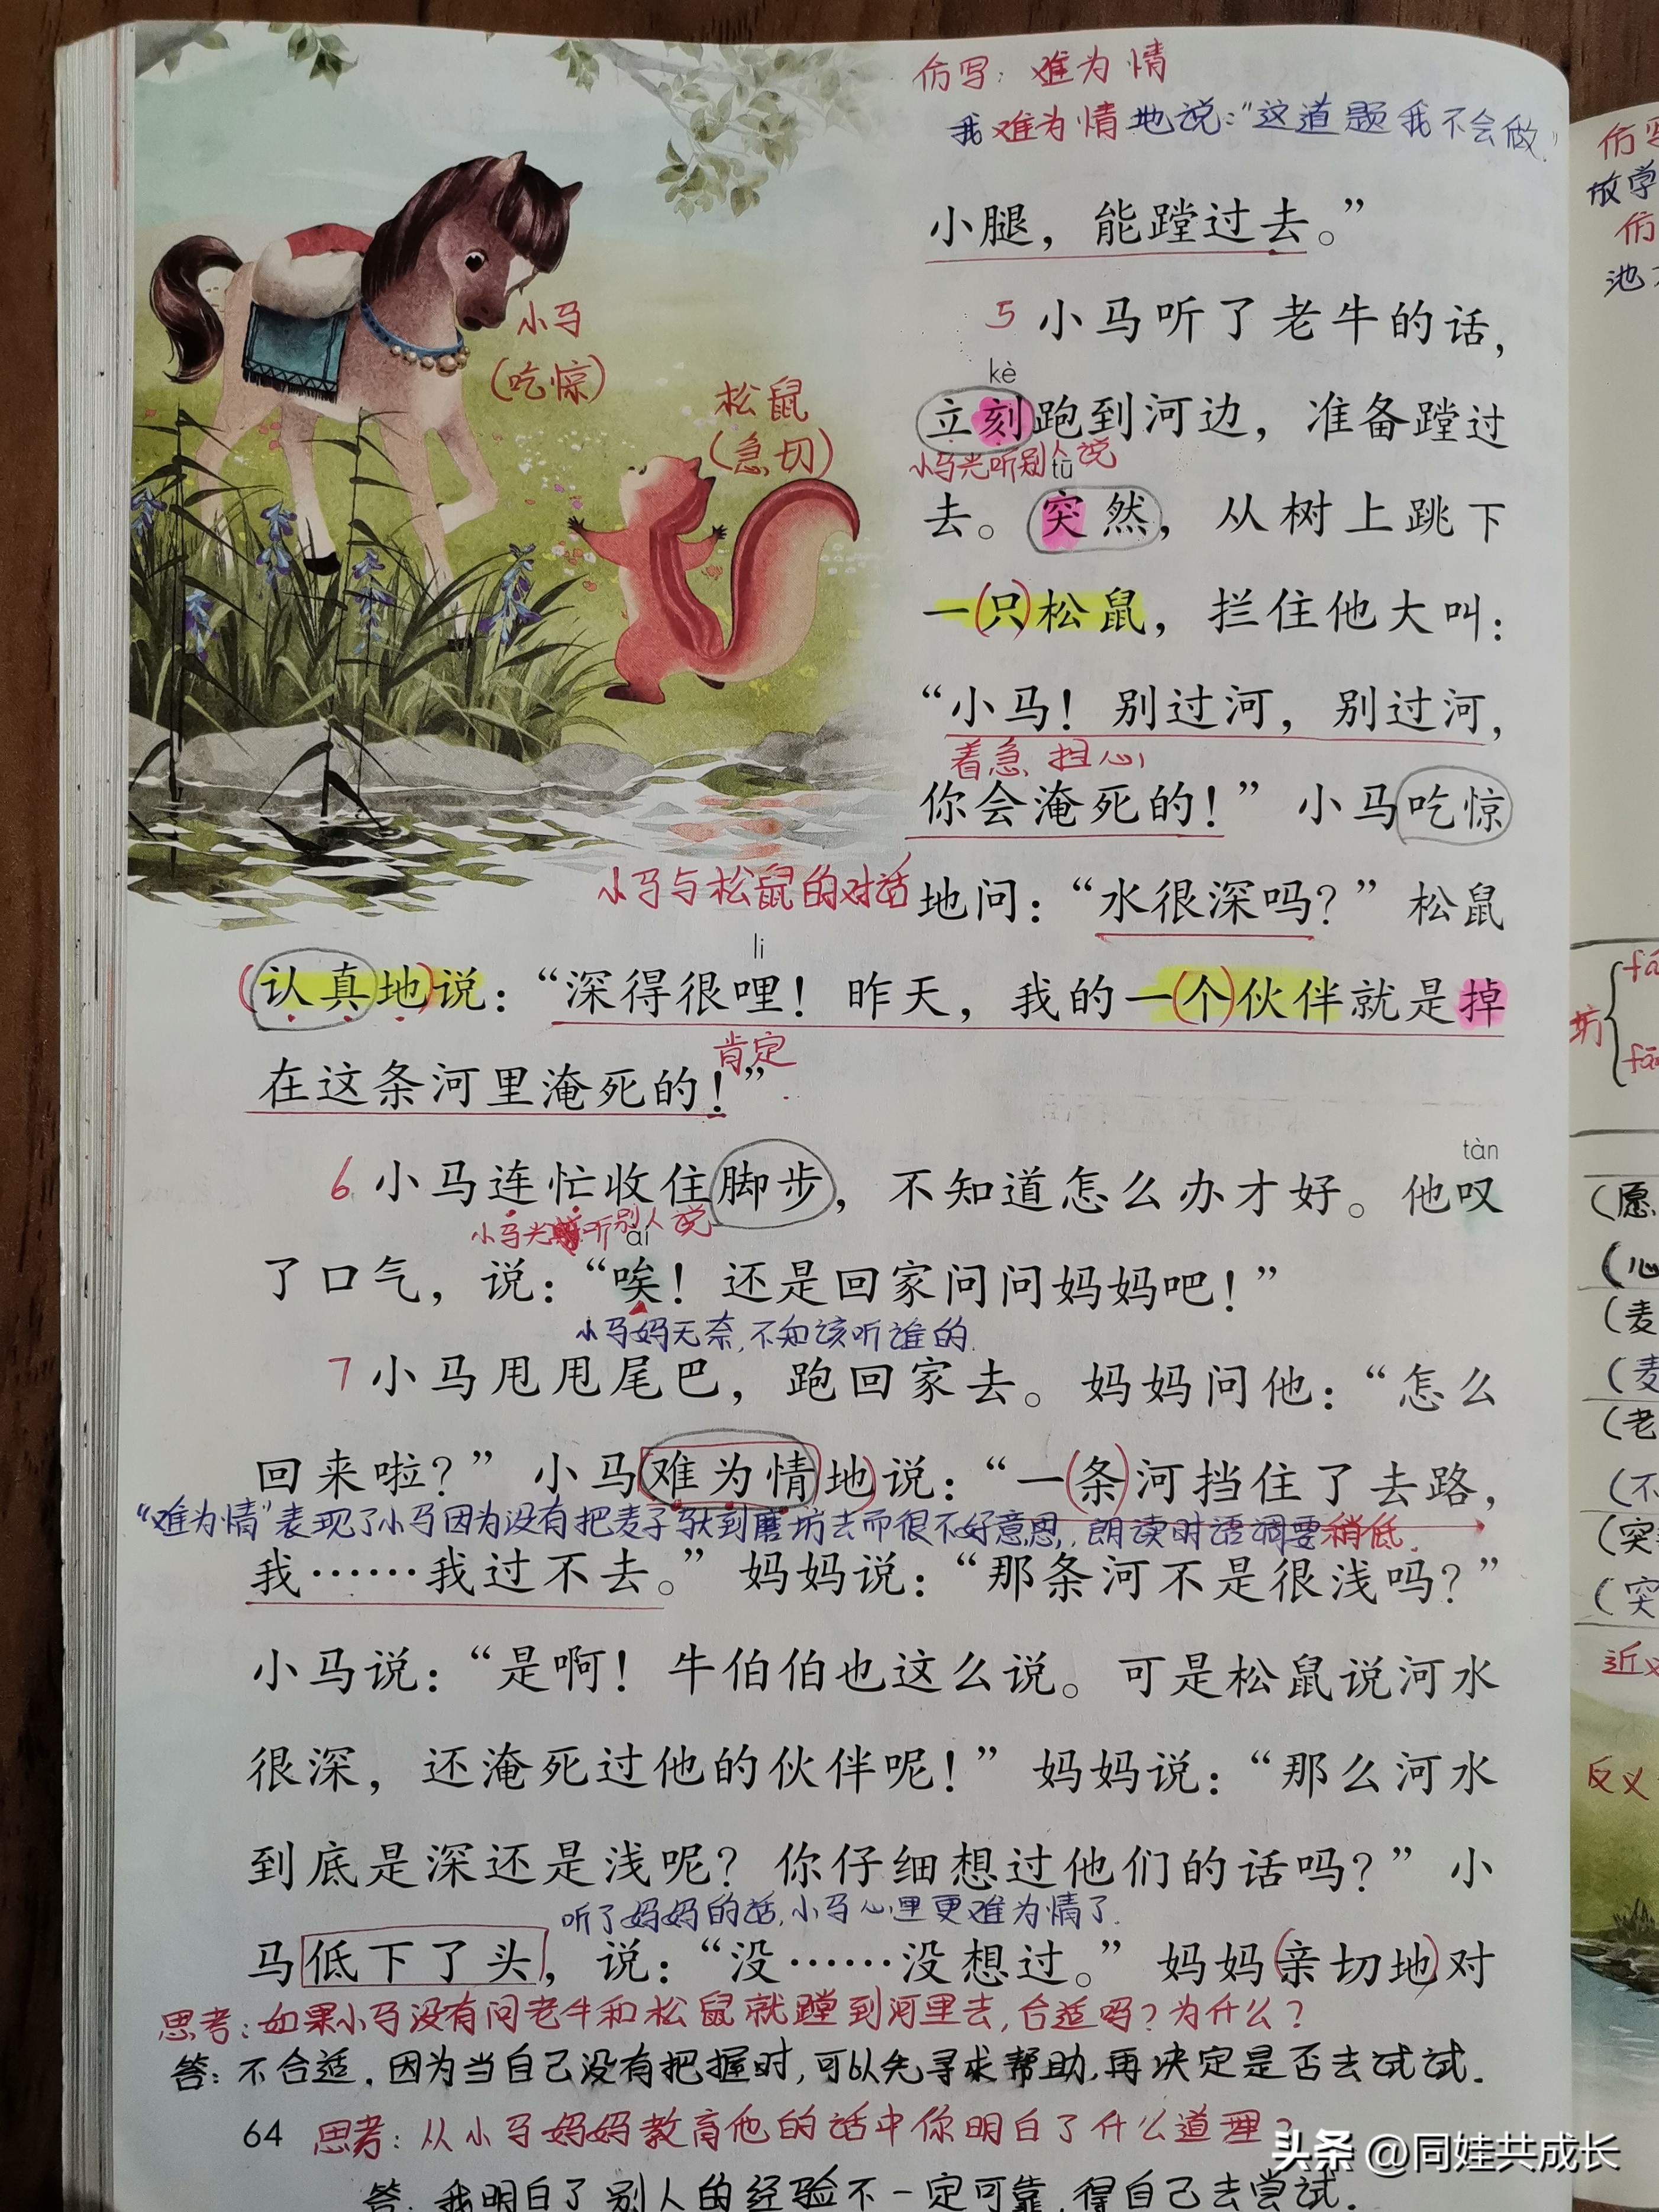 仿写：难为情
我难为情地说：“这道题我不会做。”
小腿，能蹚过去。”
5 小马听了老牛的话，
kè
立刻跑到河边，准备蹚过
小马光听别人说
tū
去。突然，从树上跳下
一(只)松鼠，拦住他大叫：
“小马！别过河，别过河，
着急、担心
你会淹死的！”小马吃惊
小马
(吃惊)
松鼠
(急切)
小马与松鼠的对话
地问：“水很深吗？”松鼠
li
(认真地)说：“深得很哩！昨天，我的一(个)伙伴就是掉
肯定
在这条河里淹死的！”
tàn
6 小马连忙收住脚步，不知道怎么办才好。他叹
小马光听别人说
āi
了口气，说：“唉！还是回家问问妈妈吧！”
小马妈无奈，不知该听谁的.
7 小马甩甩尾巴，跑回家去。妈妈问他：“怎么
回来啦？”小马难为情地)说：“一(条)河挡住了去路，
“难为情”表现了小马因为没有把麦子驮到磨坊去而很不好意思，朗读时语调要稍低.
我……我过不去。”妈妈说：“那条河不是很浅吗？”
小马说：“是啊！牛伯伯也这么说。可是松鼠说河水
很深，还淹死过他的伙伴呢！”妈妈说：“那么河水
到底是深还是浅呢？你仔细想过他们的话吗？”小
听了妈妈的话，小马心里更难为情了.
马低下了头，说：“没……没想过。”妈妈(亲切地)对
思考：如果小马没有问老牛和松鼠就蹚到河里去，合适吗？为什么？
答：不合适，因为当自己没有把握时，可以先寻求帮助，再决定是否去试试.
64
思考：从小马妈妈教育他的话中你明白了什么道理？
答：我明白了别人的经验不一定可靠，得自己去尝试.
头条 @同娃共成长
仿写
放学
仿
池
坊
(愿
(心
(麦
(麦
(老
(不
(突
(突
近义
反义